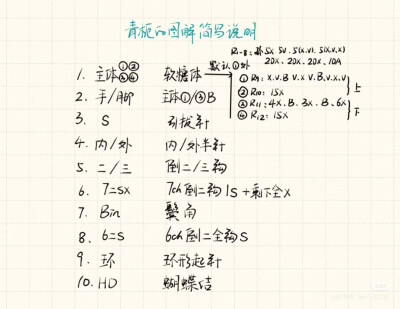 青栀的图解简写说明
R1-8:环5X 5V 5(X.V) 5(X.V.X)
20X、20X、20X、10A
1. 主体①② ③④ 软糖体 默认①外
① R9: X.V.B V.X V.B.V.X.V
② R10: 15X 上
③ R11: 4X.B.3X.B.6X
④ R12: 15X 下
2. 手/脚 主体①/③B
3. S 引拔针
4. 内/外 内/外半针
5. 二/三 倒二/三钩
6. 7=SX 7ch倒二钩1S+剩下全X
7. Bin 鬓角
8. 6=S 6ch倒二全钩S
9. 环 环形起针
10. HD 蝴蝶结